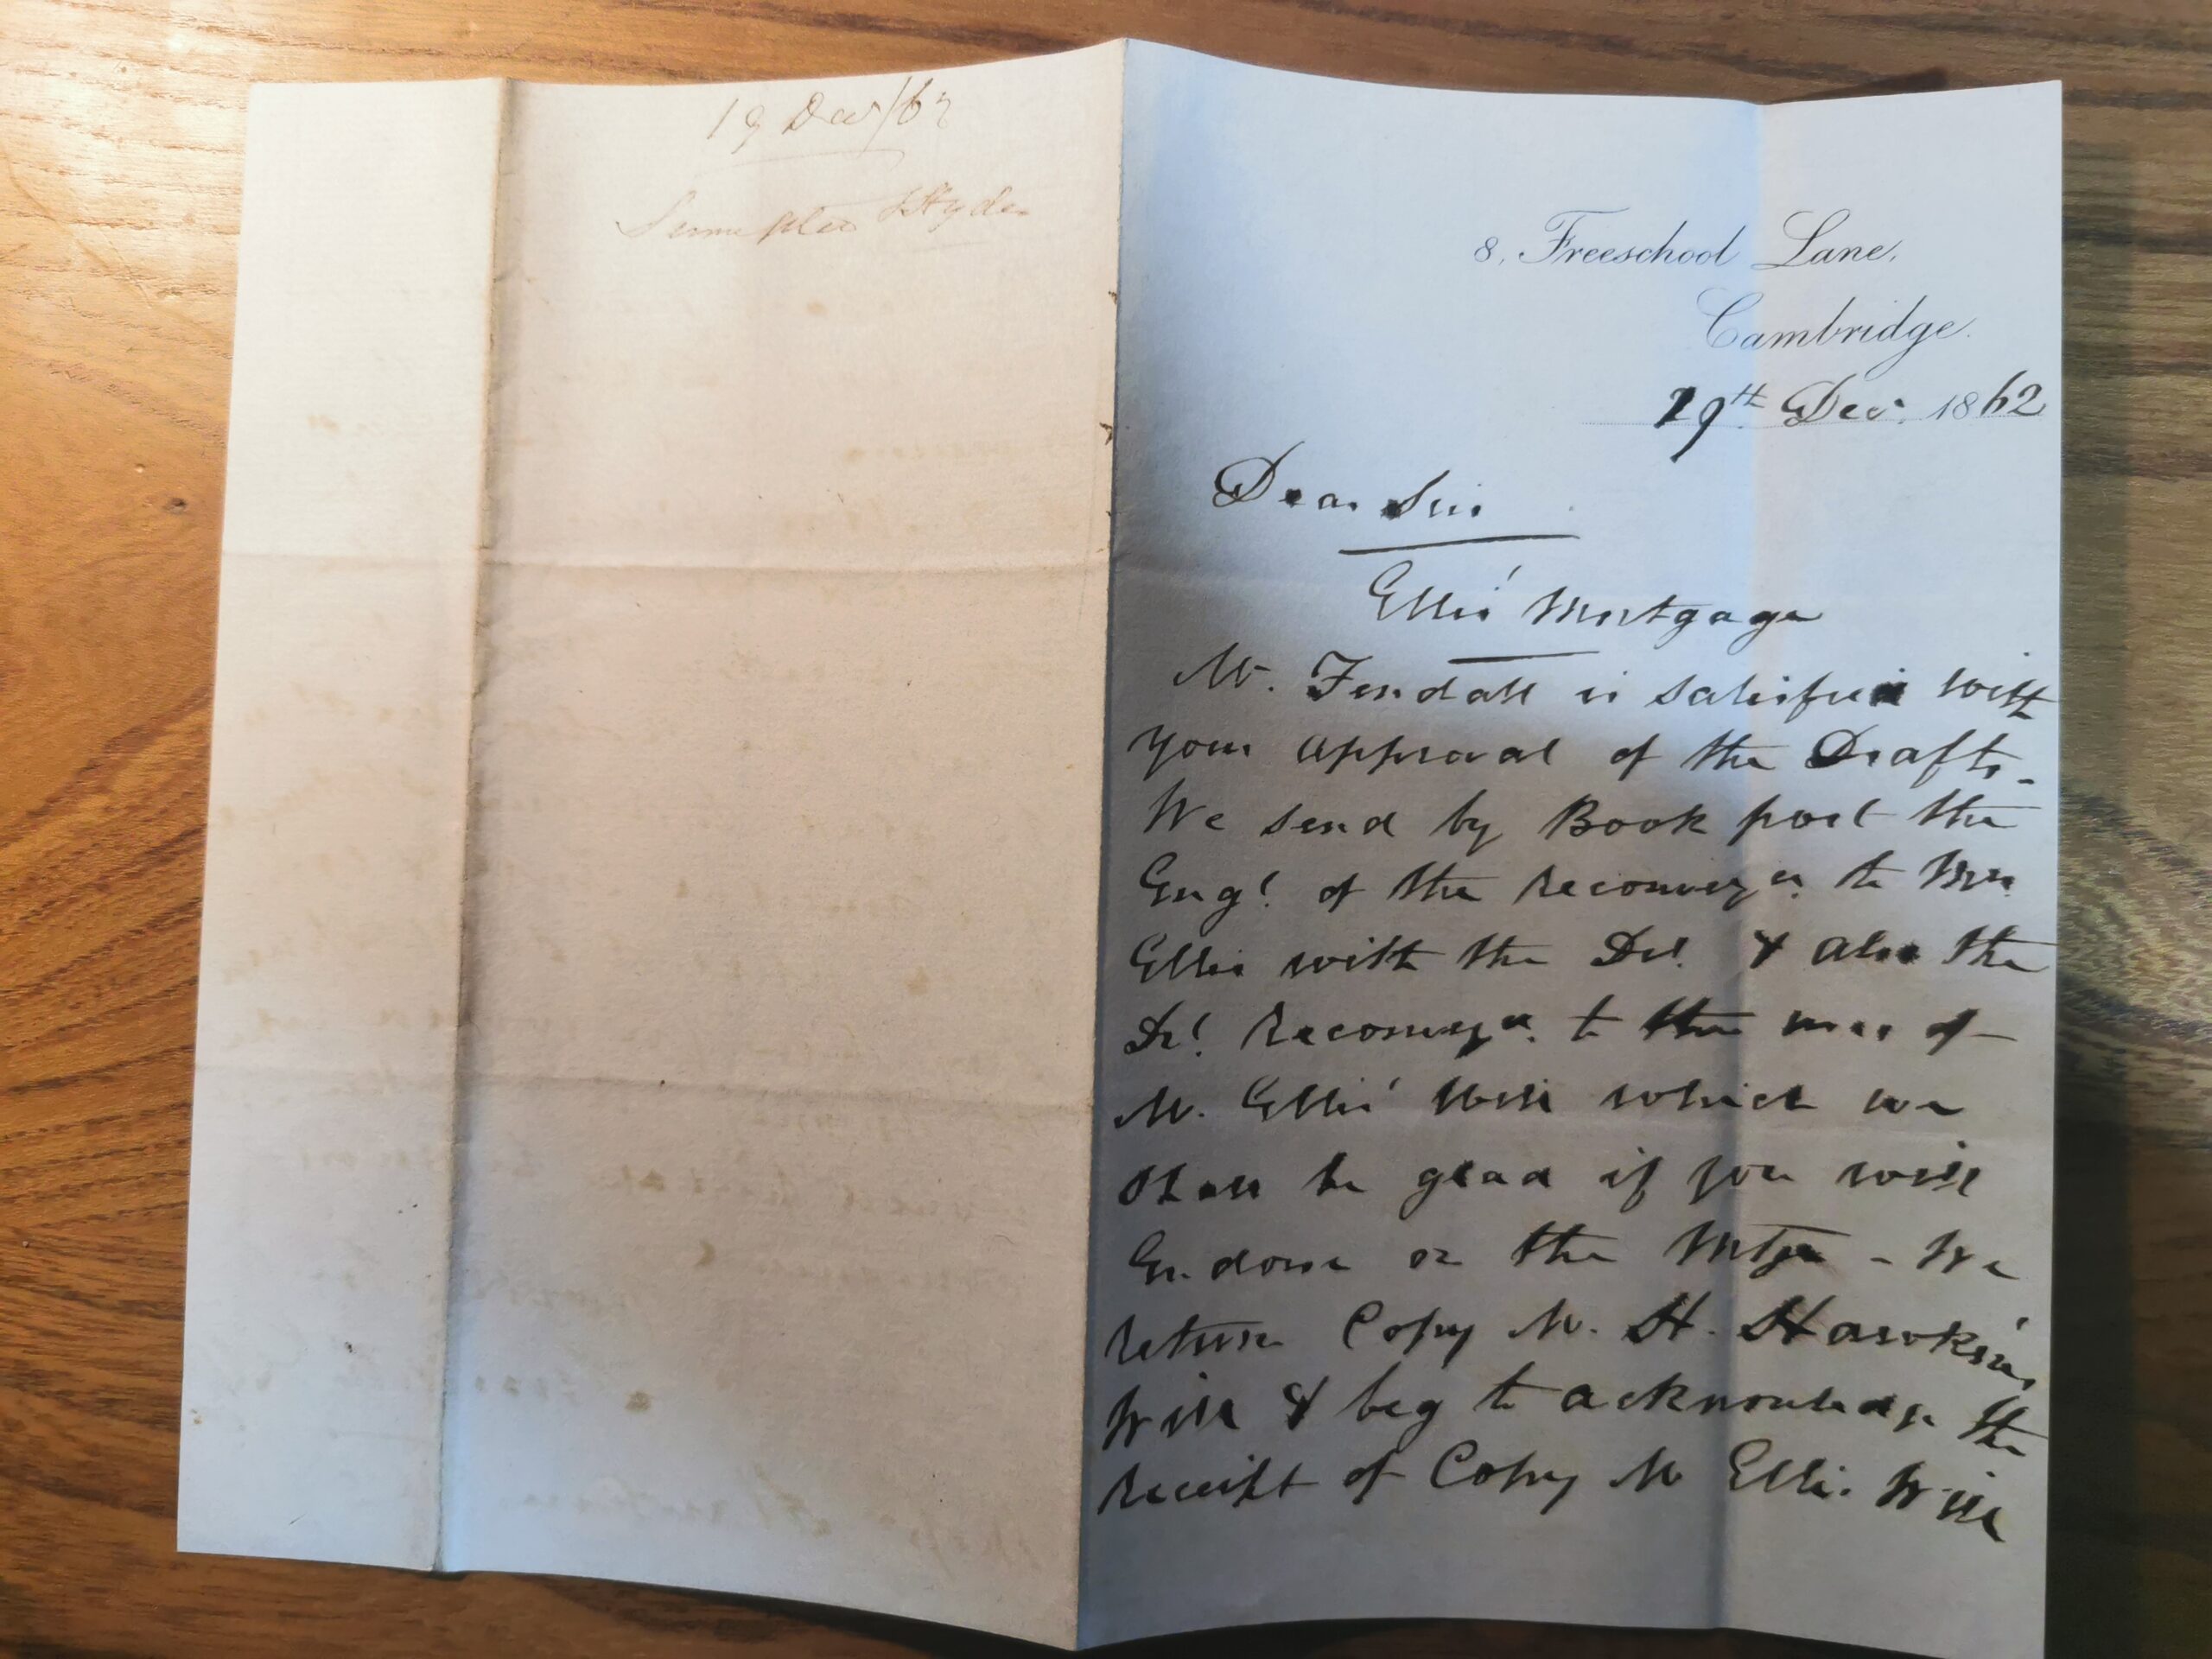 19 Decr/62
Hyde
8, Freeschool Lane,
Cambridge.
19th Decr. 1862
Dear Sir
Ellis' Mortgage
Mr. Fendall is satisfied with
your approval of the Drafts -
We send by Book post the
Engt. of the reconveyce. to Mrs
Ellis with the Dft. & also the
Dft. Reconveyce. to the uses of
Mr. Ellis' Will which we
shall be glad if you will
Endorse on the Mtge - We
return Copy Mr. H. Hawkins'
Will & beg to acknowledge the
receipt of Copy Mr Ellis. Will